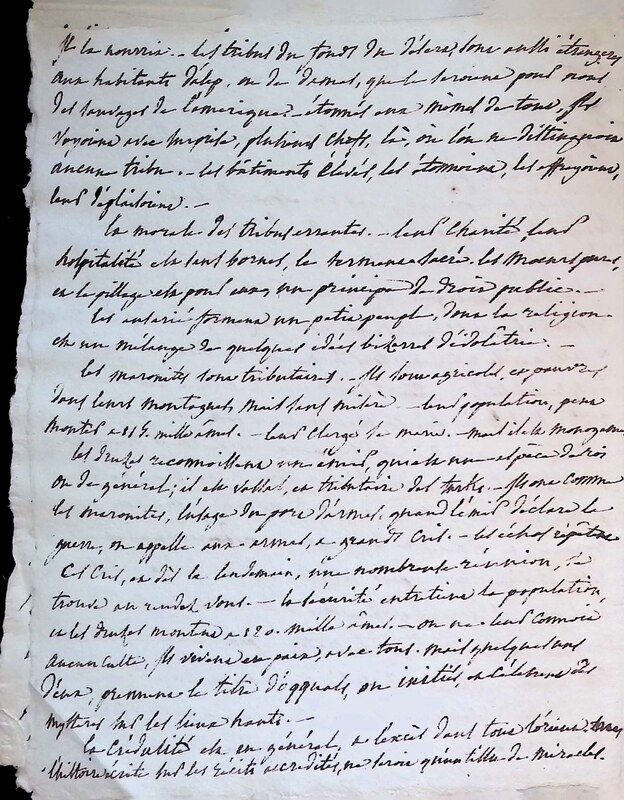 Ils la nourris. — les tribus du fonds du désert, sont aussi étrangeres
aux habitants d'alep, ou de damas, que le seroient pour nous
des sauvages de l'amerique. étonnés eux mêmes de tous, ils
voyoient avec surprise, plusieurs chefs, là, où l'on ne distinguoit
aucune tribu. — les bâtiments élevés, les étonnoient, les effrayoient,
leur déplaisoient. —
la morale des tribus errantes. — leur charité, leur
hospitalité est sans bornes, le serment sacré. les moeurs pures,
et le pillage est pour eux, un principe de droit public. —
les ansarié forment un petit peuple, dont la religion
est un mélange de quelques idées bizarres d'idolâtrie. —
les maronites sont tributaires. — Ils sont agricoles, et pauvres
dans leurs montagnes, mais sans misère — leur population, peut
monter a 115. mille âmes. — leur clergé se marie. — mais il est monogame
les druzes reconnoissent un émir, qui est une espèce de roi
ou de général; il est vassal, et tributaire des turks. — Ils ont comme
les maronites, l'usage du port d'armes, quand l'émir déclare la
guerre, on appelle aux armes, a grands cris. — les échos répètent
ces cris, et dès le lendemain, une nombreuse réunion, se
trouve au rendez vous. — la sécurité entretient la population,
et les druzes montent a 120. mille âmes. — on ne leur connoit
aucun culte, Ils vivent en paix, avec tous. mais quelques uns
d'eux, prennent le titre d'oqquals, ou initiés, et célèbrent des
mystères sur les lieux hauts. —
la crédulité est en général, a l'excès dans tout l'orient.
l'histoire écrite sur les récits accrédités, ne seroit qu'un tissu de miracles.